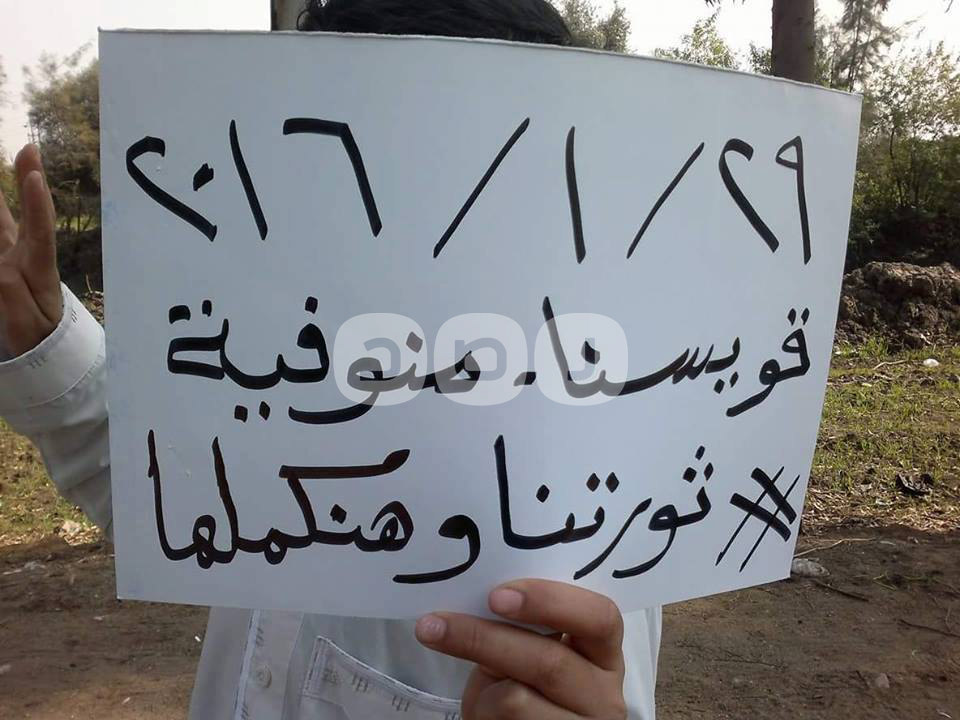 ٢٩/١/٢٠١٦
قويسنا - منوفية
#ثورتنا وهنكملها